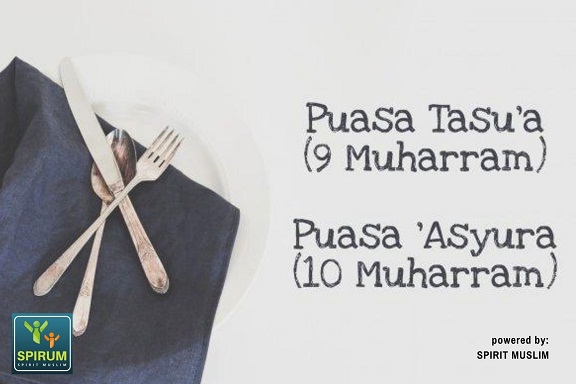 Puasa Tasu'a
(9 Muharram)
Puasa 'Asyura
(10 Muharram)
SPIRUM
SPIRIT MUSLIM
powered by:
SPIRIT MUSLIM